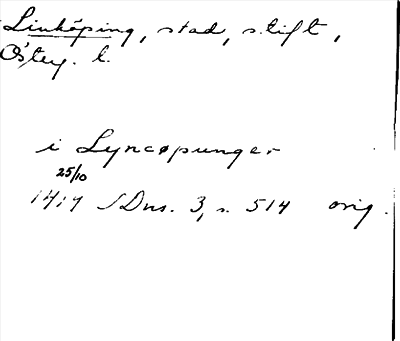 Linköping, stad, stift,
Österg. l.
i Lyncøpunger
25/10
1414 SDns. 3, s. 514 orig.